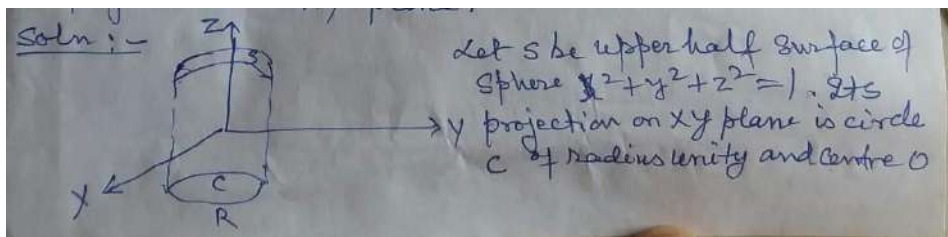 Soln :-
Z
S
Let S be upper half surface of
sphere x²+y²+z²=1. Its
Y projection on XY plane is circle
C of radius unity and centre O
X
C
R